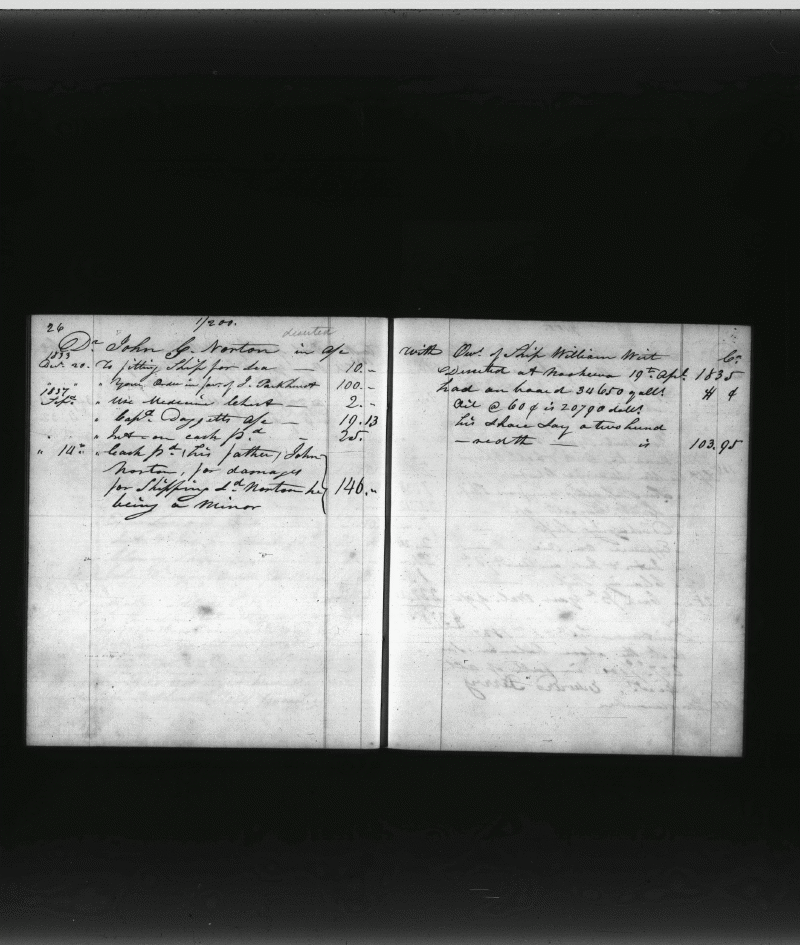 26
1/200.
deserted
Dr John G. Norton in a/c
1833
Oct. 20. To fitting Ship for Sea — 10.–
" " Your Order in fav. of J. Parkhurst 100.–
1837
Sept. " Use Medicine Chest — 2.–
" Capt. Daggetts a/c — 19.13
" " " Int. on cash pd – 25.
" 14th " Cash pd his father, John
Norton, for damages
for Shipping sd Norton he 146.–
being a Minor
with Ow. of Ship William Wirt Cr
Deserted at 19th Apl. 1835
had on board 34650 galls. $ ¢
Oil @ 60¢ is 20790 dolls.
his Share Lay a two hund
– redth — is 103.95